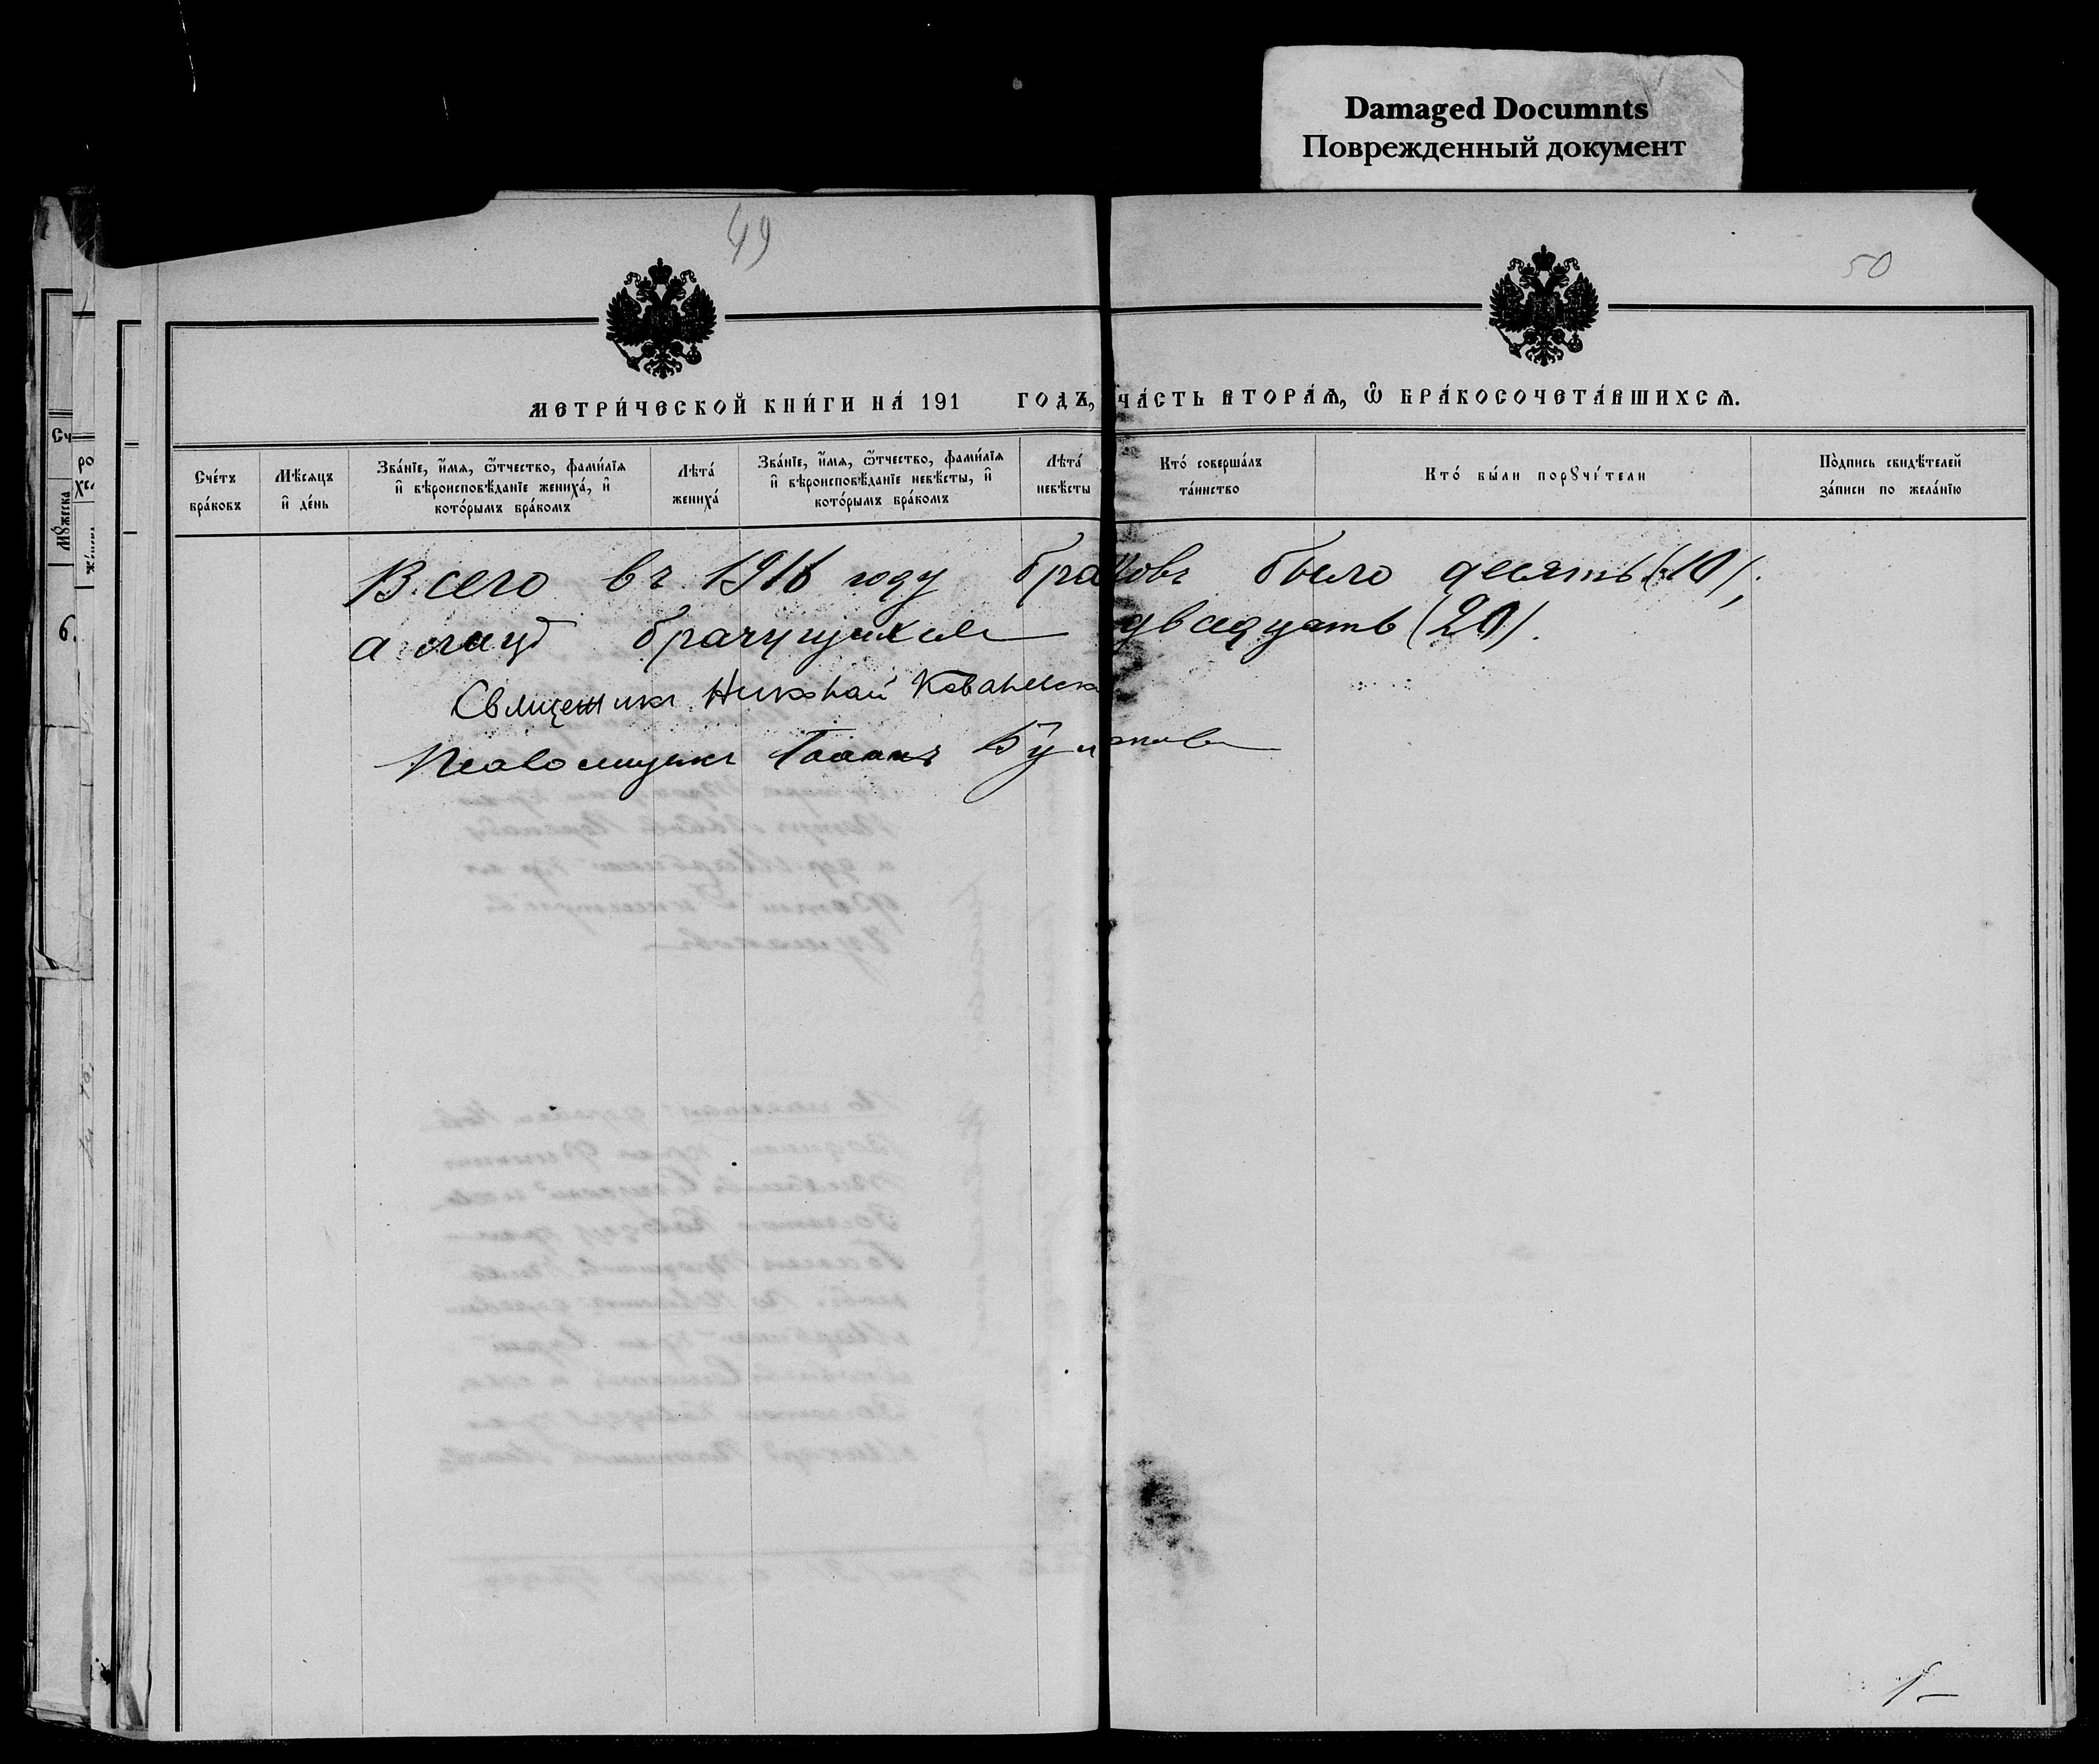 Damaged Documnts
Поврежденный документ
49
50
МЕТРИ́ЧЕСКОЙ КНИ́ГИ НА́ 191 ГОДЪ, ЧА́СТЬ ВТОРА́Ѧ, Ѽ БРА́КОСОЧЕТА́ВШИХСѦ.
Сче́тъ бра́ковъ
Мѣ́сѧцъ и҆ де́нь
Зва́нїе, и҆́мѧ, ѻ҆́тчество, фами́лїѧ и҆ вѣроисповѣ́данїе жениха́, и҆ кото́рымъ бра́комъ
Лѣта́ жениха́
Зва́нїе, и҆́мѧ, ѻ҆́тчество, фами́лїѧ и҆ вѣроисповѣ́данїе невѣ́сты, и҆ кото́рымъ бра́комъ
Лѣта́ невѣ́сты
Кто́ соверша́лъ та́инство
Кто́ бы́ли порꙋчи́тели
По́дпись свидѣ́телей за́писи по жела́нїю
Всего въ 1916 году браковъ было десять (10),
а лицъ брачущихся двадцать (20).
Священникъ Николай
Псаломщикъ Іоаннъ